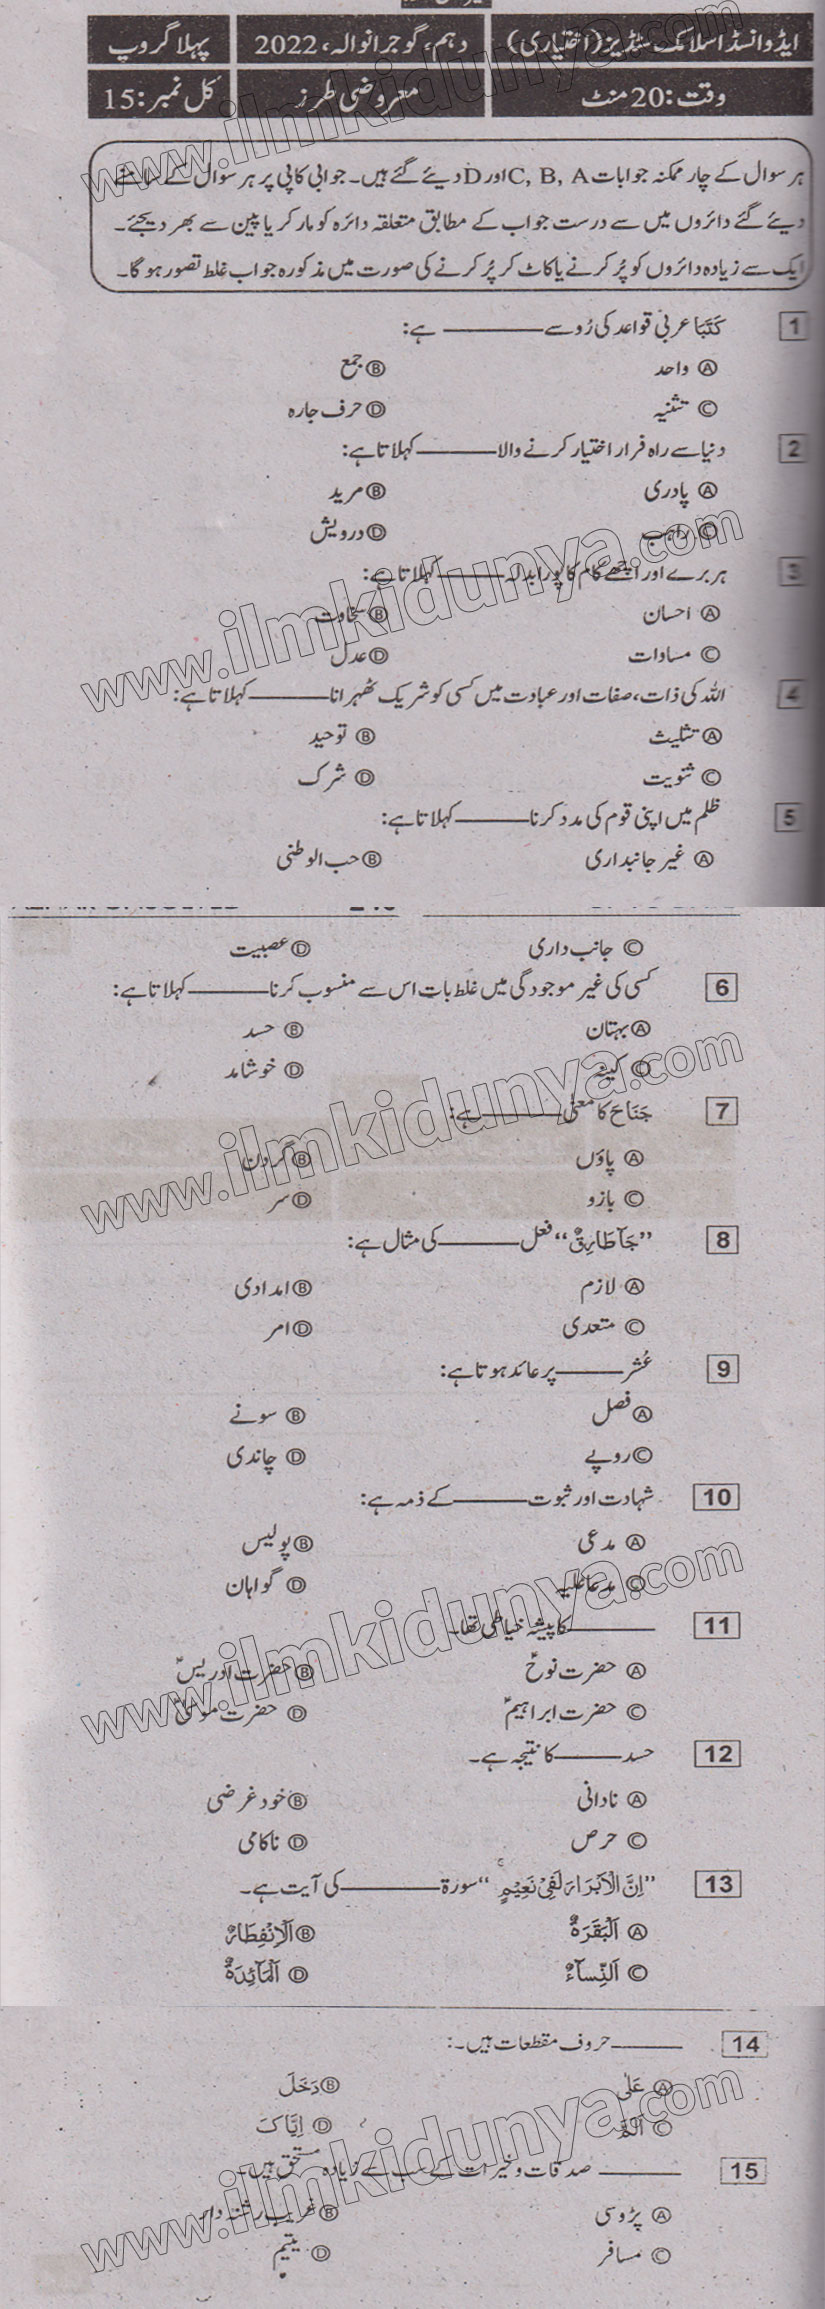 ایڈوانسڈ اسلامک سٹڈیز (اختیاری) دہم، گوجرانوالہ، 2022 پہلا گروپ
وقت: 20 منٹ معروضی طرز کل نمبر: 15
ہر سوال کے چار ممکنہ جوابات C, B, A اور D دیئے گئے ہیں۔ جوابی کاپی پر ہر سوال کے سامنے
دیئے گئے دائروں میں سے درست جواب کے مطابق متعلقہ دائرہ کو مارکر یا پین سے بھر دیجئے۔
ایک سے زیادہ دائروں کو پُر کرنے یا کاٹ کر پُر کرنے کی صورت میں مذکورہ جواب غلط تصور ہو گا۔
1 کَتَبَا عربی قواعد کی رُو سے ـــــــــ ہے:
Ⓐ واحد Ⓑ جمع
Ⓒ تثنیہ Ⓓ حرف جارہ
2 دنیا سے راہ فرار اختیار کرنے والا ـــــــــ کہلاتا ہے:
Ⓐ پادری Ⓑ مرید
Ⓒ راہب Ⓓ درویش
3 ہر برے اور اچھے کام کا پورا بدلہ ـــــــــ کہلاتا ہے:
Ⓐ احسان Ⓑ سخاوت
Ⓒ مساوات Ⓓ عدل
4 اللہ کی ذات، صفات اور عبادت میں کسی کو شریک ٹھہرانا ـــــــــ کہلاتا ہے:
Ⓐ تثلیث Ⓑ توحید
Ⓒ ثنویت Ⓓ شرک
5 ظلم میں اپنی قوم کی مدد کرنا ـــــــــ کہلاتا ہے:
Ⓐ غیر جانبداری Ⓑ حب الوطنی
Ⓒ جانب داری Ⓓ عصبیت
6 کسی کی غیر موجودگی میں غلط بات اس سے منسوب کرنا ـــــــــ کہلاتا ہے:
Ⓐ بہتان Ⓑ حسد
Ⓒ کینہ Ⓓ خوشامد
7 جَنَاحَ کا معنی ـــــــــ ہے:
Ⓐ پاؤں Ⓑ گردن
Ⓒ بازو Ⓓ سر
8 ”جَآ طَارِقٌ“ فعل ـــــــــ کی مثال ہے:
Ⓐ لازم Ⓑ امدادی
Ⓒ متعدی Ⓓ امر
9 عُشر ـــــــــ پر عائد ہوتا ہے:
Ⓐ فصل Ⓑ سونے
Ⓒ روپے Ⓓ چاندی
10 شہادت اور ثبوت ـــــــــ کے ذمہ ہے:
Ⓐ مدعی Ⓑ پولیس
Ⓒ مدعا علیہ Ⓓ گواہان
11 ـــــــــ کا پیشہ خیاطی تھا۔
Ⓐ حضرت نوحؑ Ⓑ حضرت ادریسؑ
Ⓒ حضرت ابراہیمؑ Ⓓ حضرت موسیٰؑ
12 حسد ـــــــــ کا نتیجہ ہے۔
Ⓐ نادانی Ⓑ خود غرضی
Ⓒ حرص Ⓓ ناکامی
13 ”اِنَّ الْاَبْرَارَ لَفِیْ نَعِیْمٍ“ سورۃ ـــــــــ کی آیت ہے۔
Ⓐ اَلْبَقَرَةُ Ⓑ اَلْاِنْفِطَارُ
Ⓒ اَلنِّسآءُ Ⓓ اَلْمَآئِدَةُ
14 ـــــــــ حروف مقطعات ہیں۔:
Ⓐ عَلٰی Ⓑ دَخَلَ
Ⓒ الٓمّٓ Ⓓ اِیَّاکَ
15 ـــــــــ صدقات و خیرات کے سب سے زیادہ مستحق ہیں۔
Ⓐ پڑوسی Ⓑ غریب رشتہ دار
Ⓒ مسافر Ⓓ یتیم
www.ilmkidunya.com
www.ilmkidunya.com
www.ilmkidunya.com
www.ilmkidunya.com
www.ilmkidunya.com